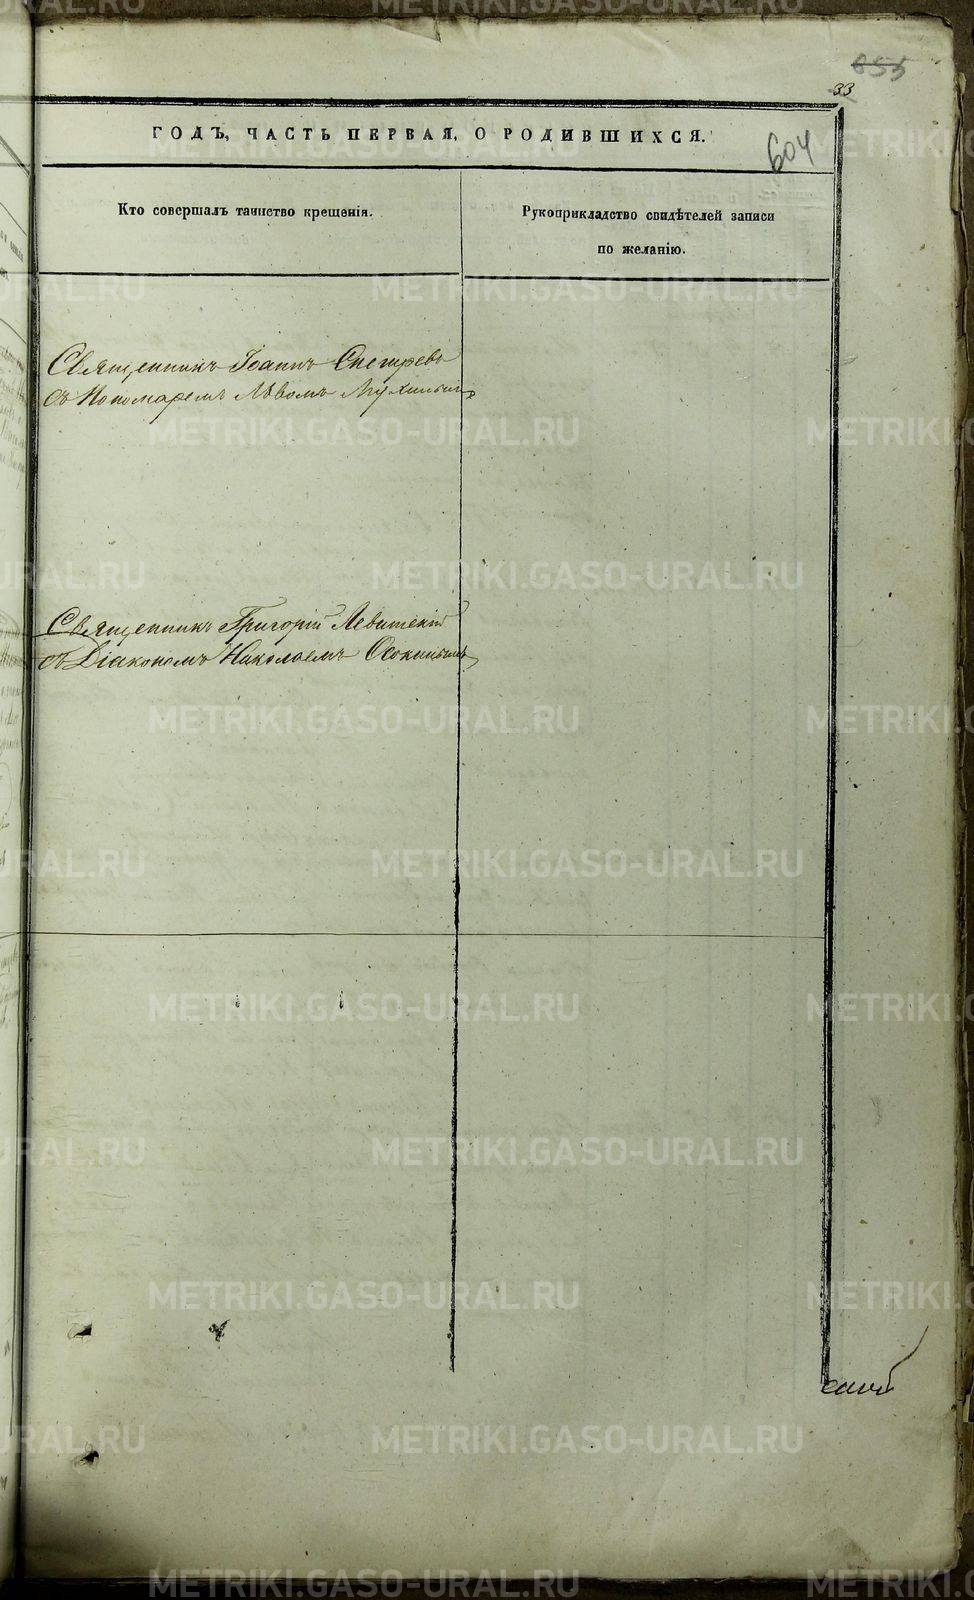 33
604
ГОДЪ, ЧАСТЬ ПЕРВАЯ, О РОДИВШИХСЯ.
Кто совершалъ таинство крещенія.
Рукоприкладство свидѣтелей записи
по желанію.
Священникъ Іоаннъ Снегирев
Съ Пономаремъ Львомъ
Священникъ Григорій Левитскій
съ Діакономъ Николаемъ Осокинымъ
METRIKI.GASO-URAL.RU